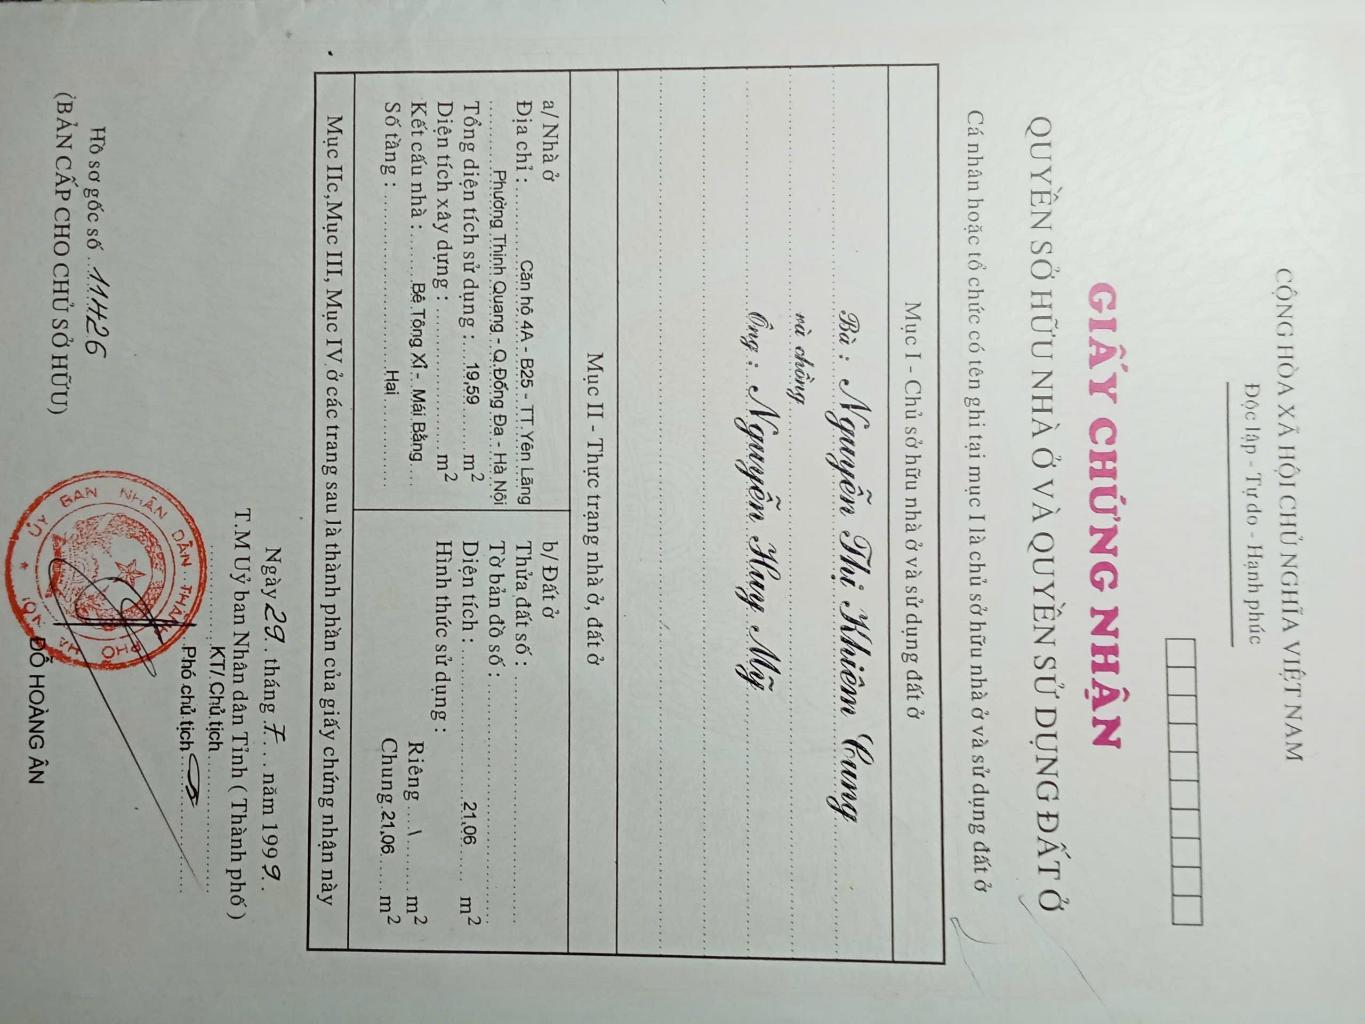 CỘNG HÒA XÃ HỘI CHỦ NGHĨA VIỆT NAM
Độc lập - Tự do - Hạnh phúc
GIẤY CHỨNG NHẬN
QUYỀN SỞ HỮU NHÀ Ở VÀ QUYỀN SỬ DỤNG ĐẤT Ở
Cá nhân hoặc tổ chức có tên ghi tại mục I là chủ sở hữu nhà ở và sử dụng đất ở
Mục I - Chủ sở hữu nhà ở và sử dụng đất ở
Bà : Nguyễn Thị Khiêm Cung
và chồng
Ông : Nguyễn Huy Mỹ
Mục II - Thực trạng nhà ở, đất ở
a/ Nhà ở
Địa chỉ : Căn hộ 4A - B25 - TT.Yên Lãng
Phường Thịnh Quang - Q.Đống Đa - Hà Nội
Tổng diện tích sử dụng : 19,59 m2
Diện tích xây dựng : m2
Kết cấu nhà : Bê Tông Xỉ - Mái Bằng
Số tầng : Hai
b/ Đất ở
Thửa đất số :
Tờ bản đồ số :
Diện tích : 21,06 m2
Hình thức sử dụng :
Riêng \ m2
Chung 21,06 m2
Mục IIc,Mục III, Mục IV ở các trang sau là thành phần của giấy chứng nhận này
Ngày 29 tháng 7 năm 1999
T.M Uỷ ban Nhân dân Tỉnh ( Thành phố )
KT/ Chủ tịch
Phó chủ tịch
ỦY BAN NHÂN DÂN THÀNH PHỐ HÀ NỘI
ĐỖ HOÀNG ÂN
Hồ sơ gốc số 11H26
(BẢN CẤP CHO CHỦ SỞ HỮU)